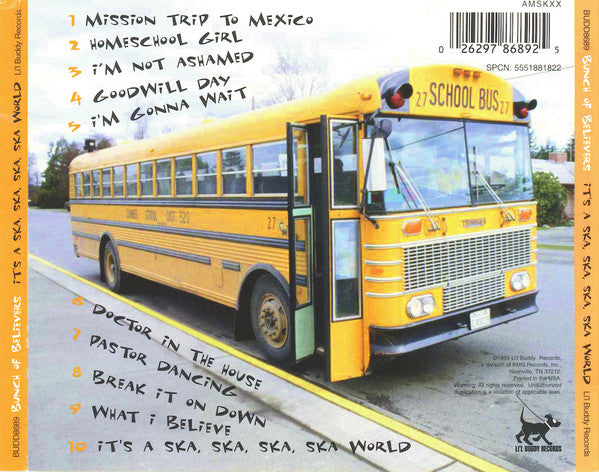 1 MISSION TRIP TO MEXICO
2 HOMESCHOOL GIRL
3 i'M NOT ASHAMED
4 GOODWILL DAY
5 i'M GONNA WAIT
6 DOCTOR IN THE HOUSE
7 PASTOR DANCING
8 BREAK iT ON DOWN
9 WHAT i BELIEVE
10 iT'S A SKA, SKA, SKA, SKA WORLD
AMSKXX
0 26297 86892 5
SPCN: 5551881822
27 SCHOOL BUS 27
SUMNER SCHOOL DIST. 320
27
THOMAS
©1999 Li'l Buddy Records,
a division of KMG Records, Inc.,
Nashville, TN 37212.
Printed in the USA.
Warning: All rights reserved. Unauthorized
duplication is a violation of applicable laws.
LI'L BUDDY RECORDS
BUDD8689 BUNCH OF BELiEVERS iT'S A SKA, SKA, SKA, SKA WORLD Li'l Buddy Records
BUDD8689 BUNCH OF BELiEVERS iT'S A SKA, SKA, SKA, SKA WORLD Li'l Buddy Records